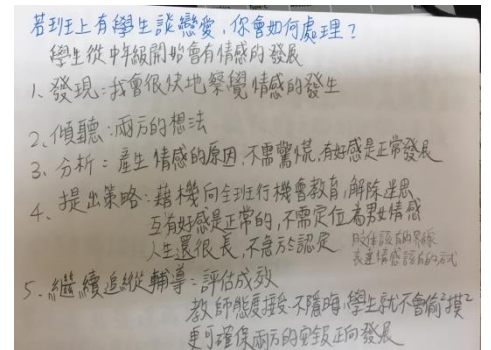 若班上有學生談戀愛,你會如何處理?
學生從中年級開始會有情感的發展
1、發現:我會很快地察覺情感的發生
2、傾聽:兩方的想法
3、分析:產生情感的原因,不需驚慌,有好感是正常發展
4、提出策略:藉機向全班行機會教育,解除迷思
互有好感是正常的,不需定位者男女情感
人生還很長,不急於認定
設有的界線
表達情感該有的方式
5、繼續追縱輔導:評估成效
教師態度接受、不隱晦,學生就不會偷²摸²
更可確保兩方的安全正向發展